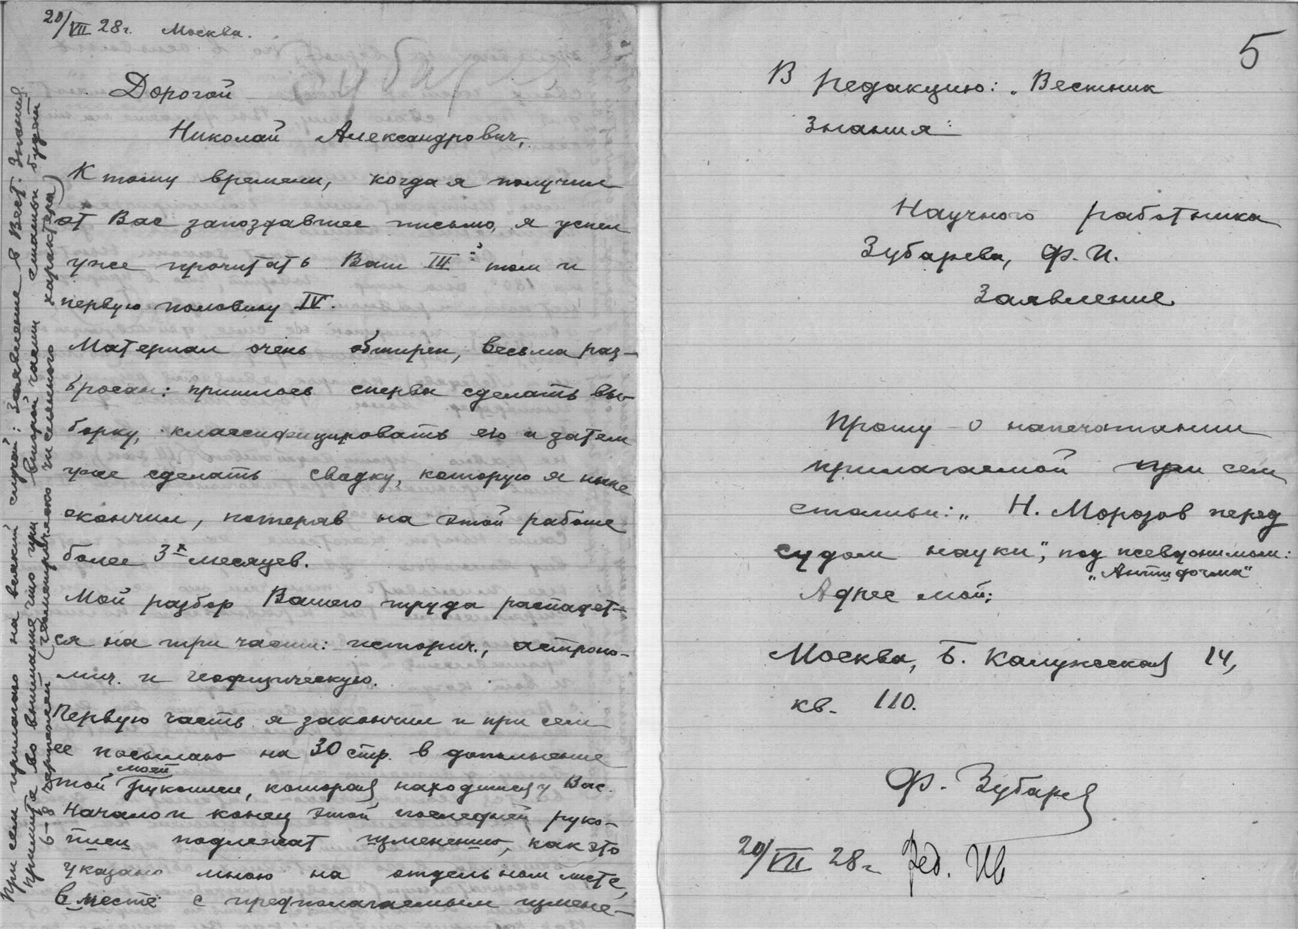 20/VII 28 г. Москва.
Дорогой
Николай Александрович,
К тому времени, когда я получил
от Вас запоздавшее письмо, я успел
уже прочитать Ваш III й том и
первую половину IV.
Материал очень обширен, весьма раз-
бросан: пришлось сперва сделать вы-
борку, классифицировать его и затем
уже сделать сводку, которую я ныне
окончил, потеряв на этой работе
более 3х месяцев.
Мой разбор Вашего труда распадает-
ся на три части: историч., астроно-
мич. и геофизическую.
Первую часть я закончил и при сем
ее посылаю на 30 стр. в дополнение
той моей рукописи, которая находится у Вас.
Начало и конец этой последней руко-
писи подлежат изменению, как это
указано мною на отдельном листе,
вместе с предполагаемым измене-
При сем прилагаю на всякий случай: Заявление в Вест. Знания
примите во внимание что при второй части статьи будет
6-8 чертежей (геометрического численного характера)
5
В Редакцию: „Вестник
Знания"
Научного работника
Зубарева, Ф. И.
Заявление
Прошу о напечатании
прилагаемой при сем
статьи: „Н. Морозов перед
судом науки", под псевдонимом:
„Антидогма"
Адрес мой:
Москва, Б. Калужская 14,
кв. 110.
Ф. Зубарев
20/VII 28 г.